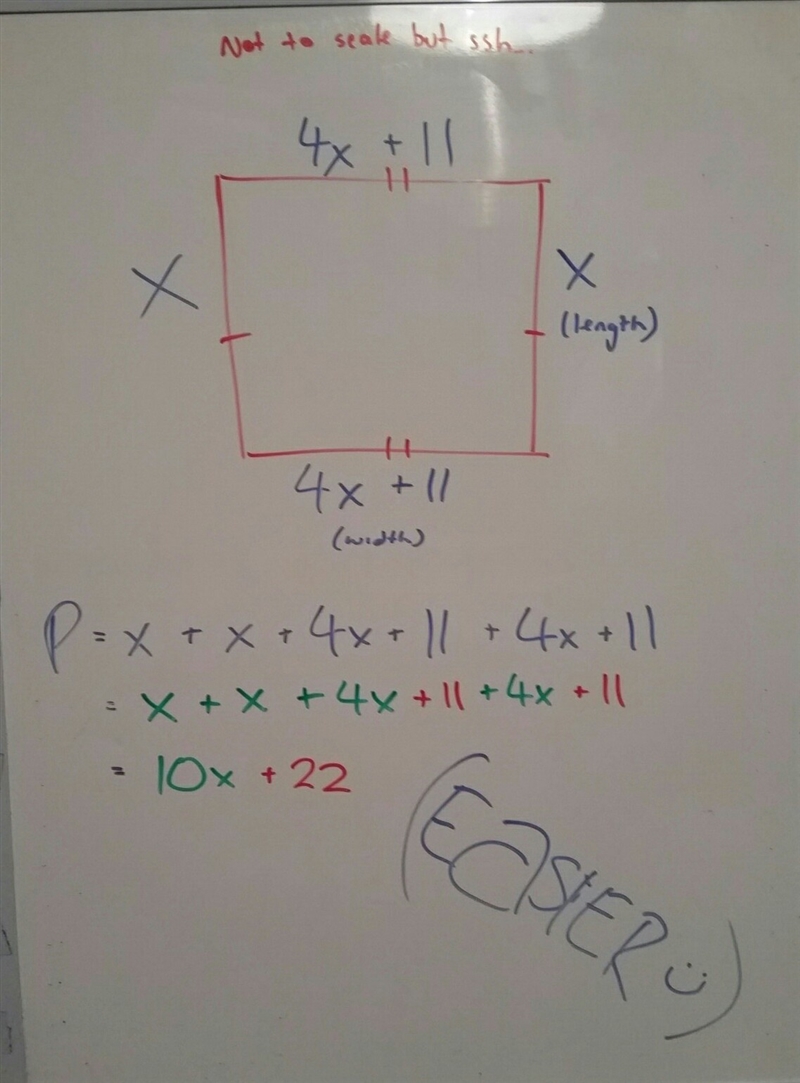 Not to scale but ssh...
4x + 11
x
x
(length)
4x + 11
(width)
P = x + x + 4x + 11 + 4x + 11
= x + x + 4x + 11 + 4x + 11
= 10x + 22
(EASIER ز)